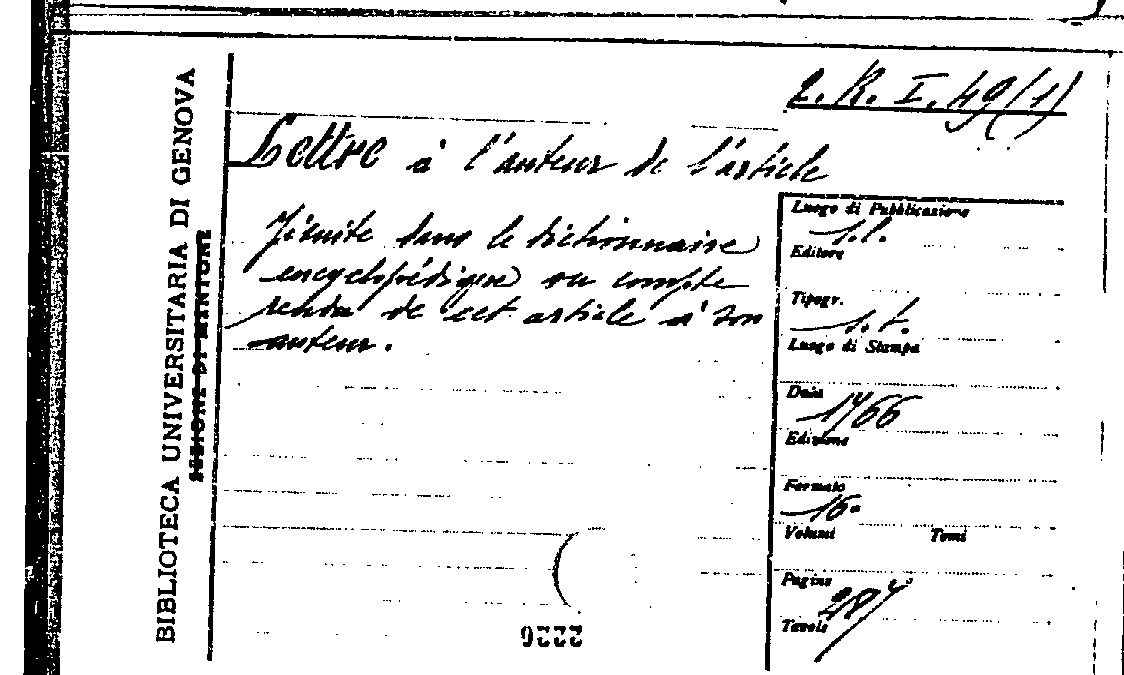 2. R. I. 49 (1)
BIBLIOTECA UNIVERSITARIA DI GENOVA
Lettre à l'auteur de l'article
Jésuite dans le dictionnaire
encyclopédique ou compte
rendu de cet article à son
auteur.
Luogo di Pubblicazione
s.l.
Editore
Tipogr.
s.t.
Luogo di Stampa
Data
1766
Edizione
Formato
16°
Volumi Tomi
Pagine
Tavole
2226